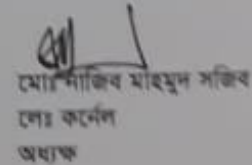 মোঃ নাজিব মাহমুদ সজিব
লেঃ কর্নেল
অধ্যক্ষ